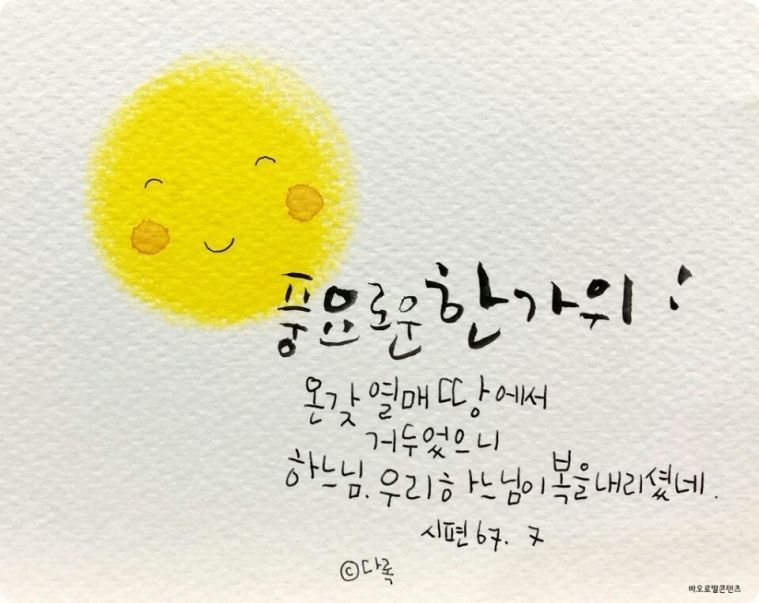 풍요로운 한가위!
온갖 열매 땅에서
거두었으니
하느님. 우리 하느님이 복을 내리셨네.
시편 67. 7
©다록
바오로딸콘텐츠